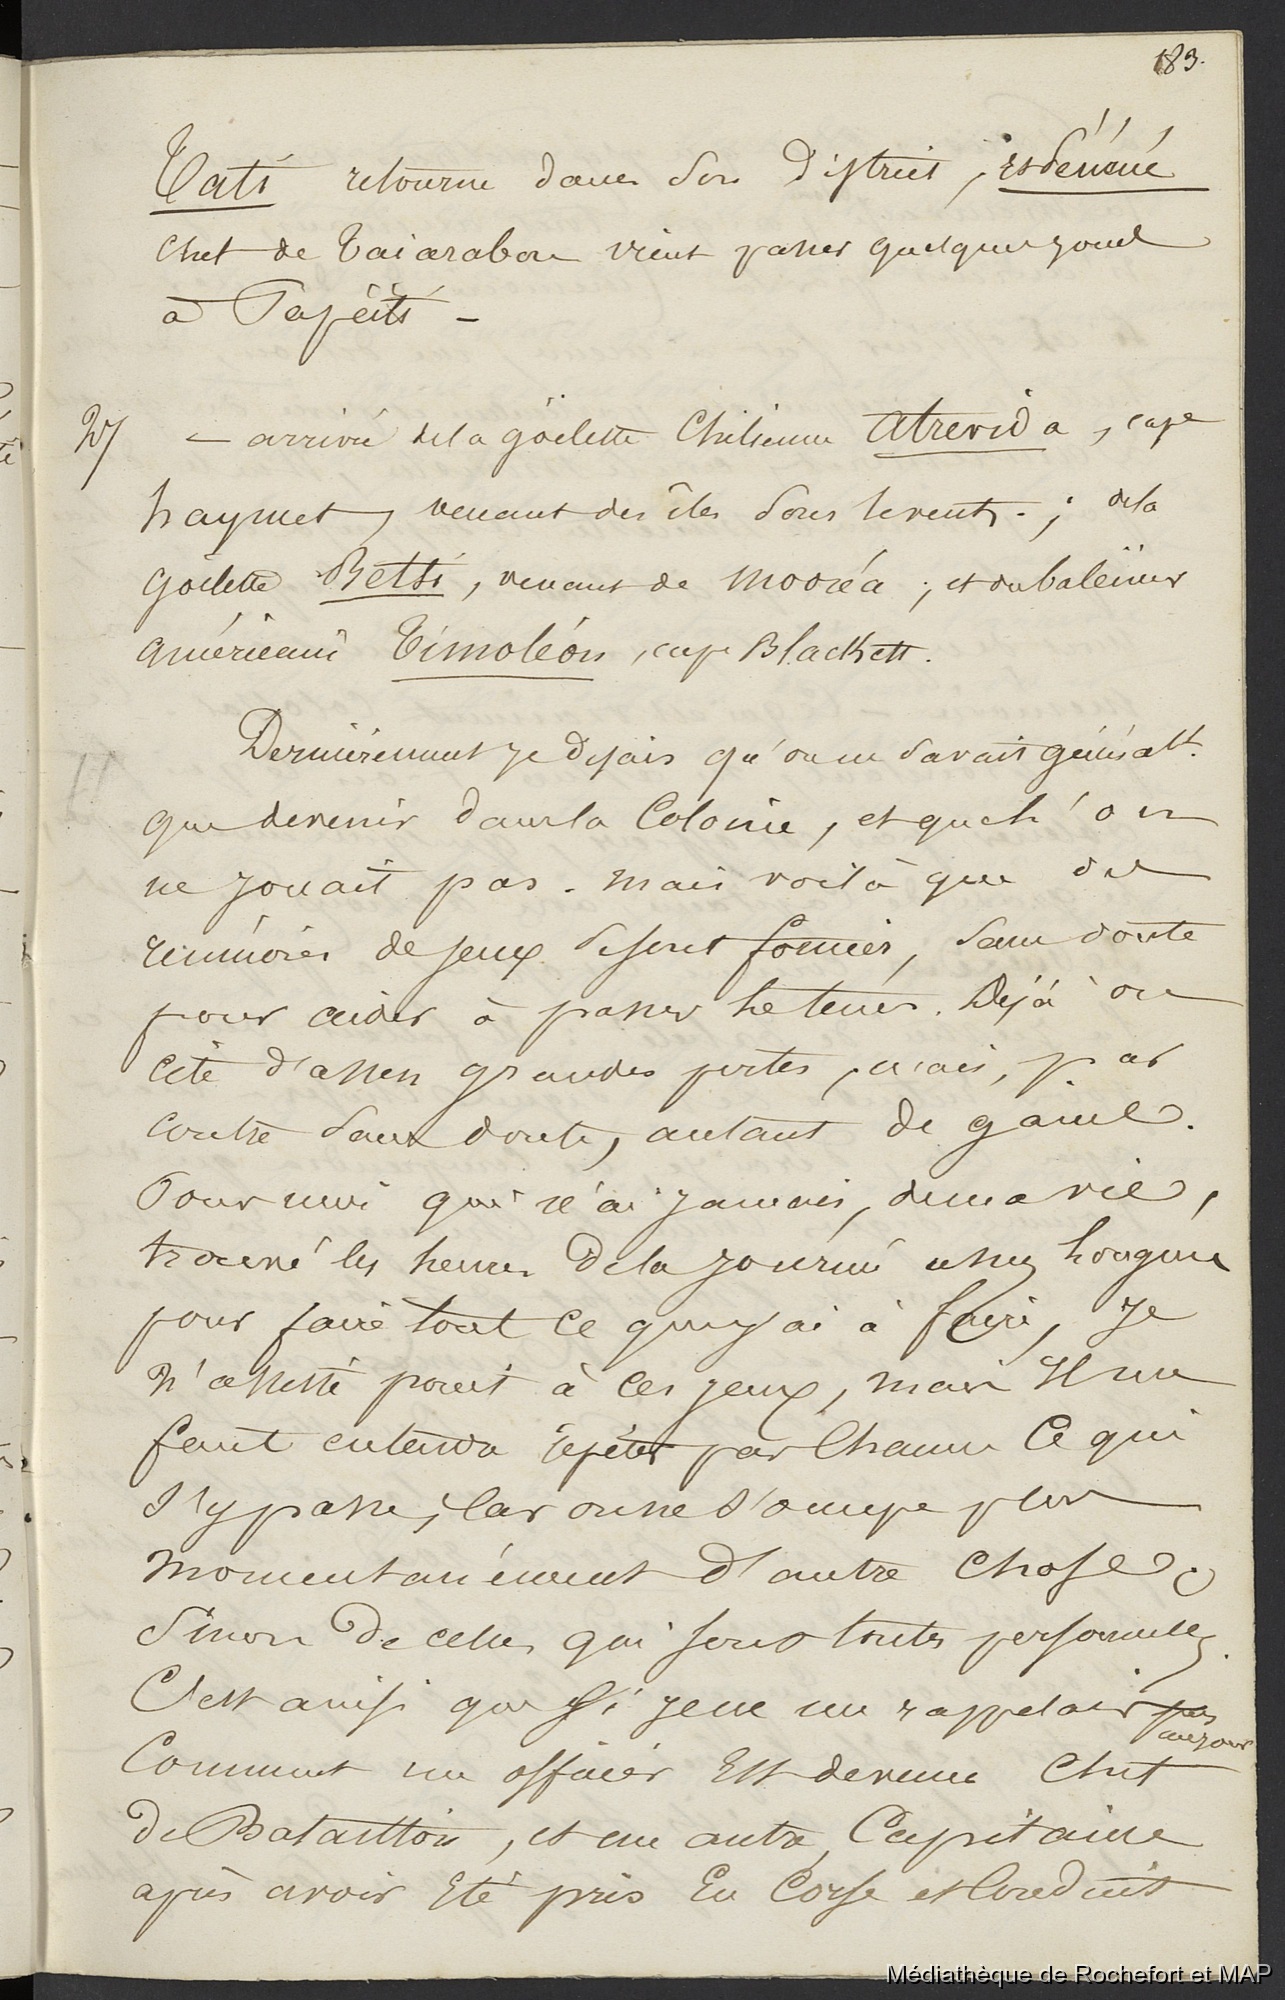 183.
Tati retourne dans son district ; et
chef de Taiarabou vient passer quelques jours
à Papéiti -
27 — arrivée de la göelette Chilienne Atrevida, cape
haymet, venant des îles sous le vent ; de la
göelette Betsi, venant de Mooréa ; et du baleinier
américain Timoléon, cape Blackett.
Dernièrement je disais qu'on ne savait généralt.
que devenir dans la Colonie, et que l'on
ne jouait pas. mais voilà que des
réunions de jeux se sont formées, sans doute
pour aider à passer le tems. Déjà on
cite d'assez grandes pertes, mais, par
contre sans doute, autant de gains.
Pour moi qui n'ai jamais, de ma vie,
trouvé les heures de la journée assez longues
pour faire tout ce que j'ai à faire, je
n'assiste point à ces jeux, mais il me
faut entendre répéter par chacun ce qui
s'y passe ; car on ne s'occupe plus
momentanément d'autre chose,
sinon de celles qui sont toutes personnelles.
C'est ainsi que si je ne me rappelais pas
Comment un officier est devenu chef
de Bataillon, et un autre, Capitaine
après avoir été pris en Corse et conduit
Médiathèque de Rochefort et MAP